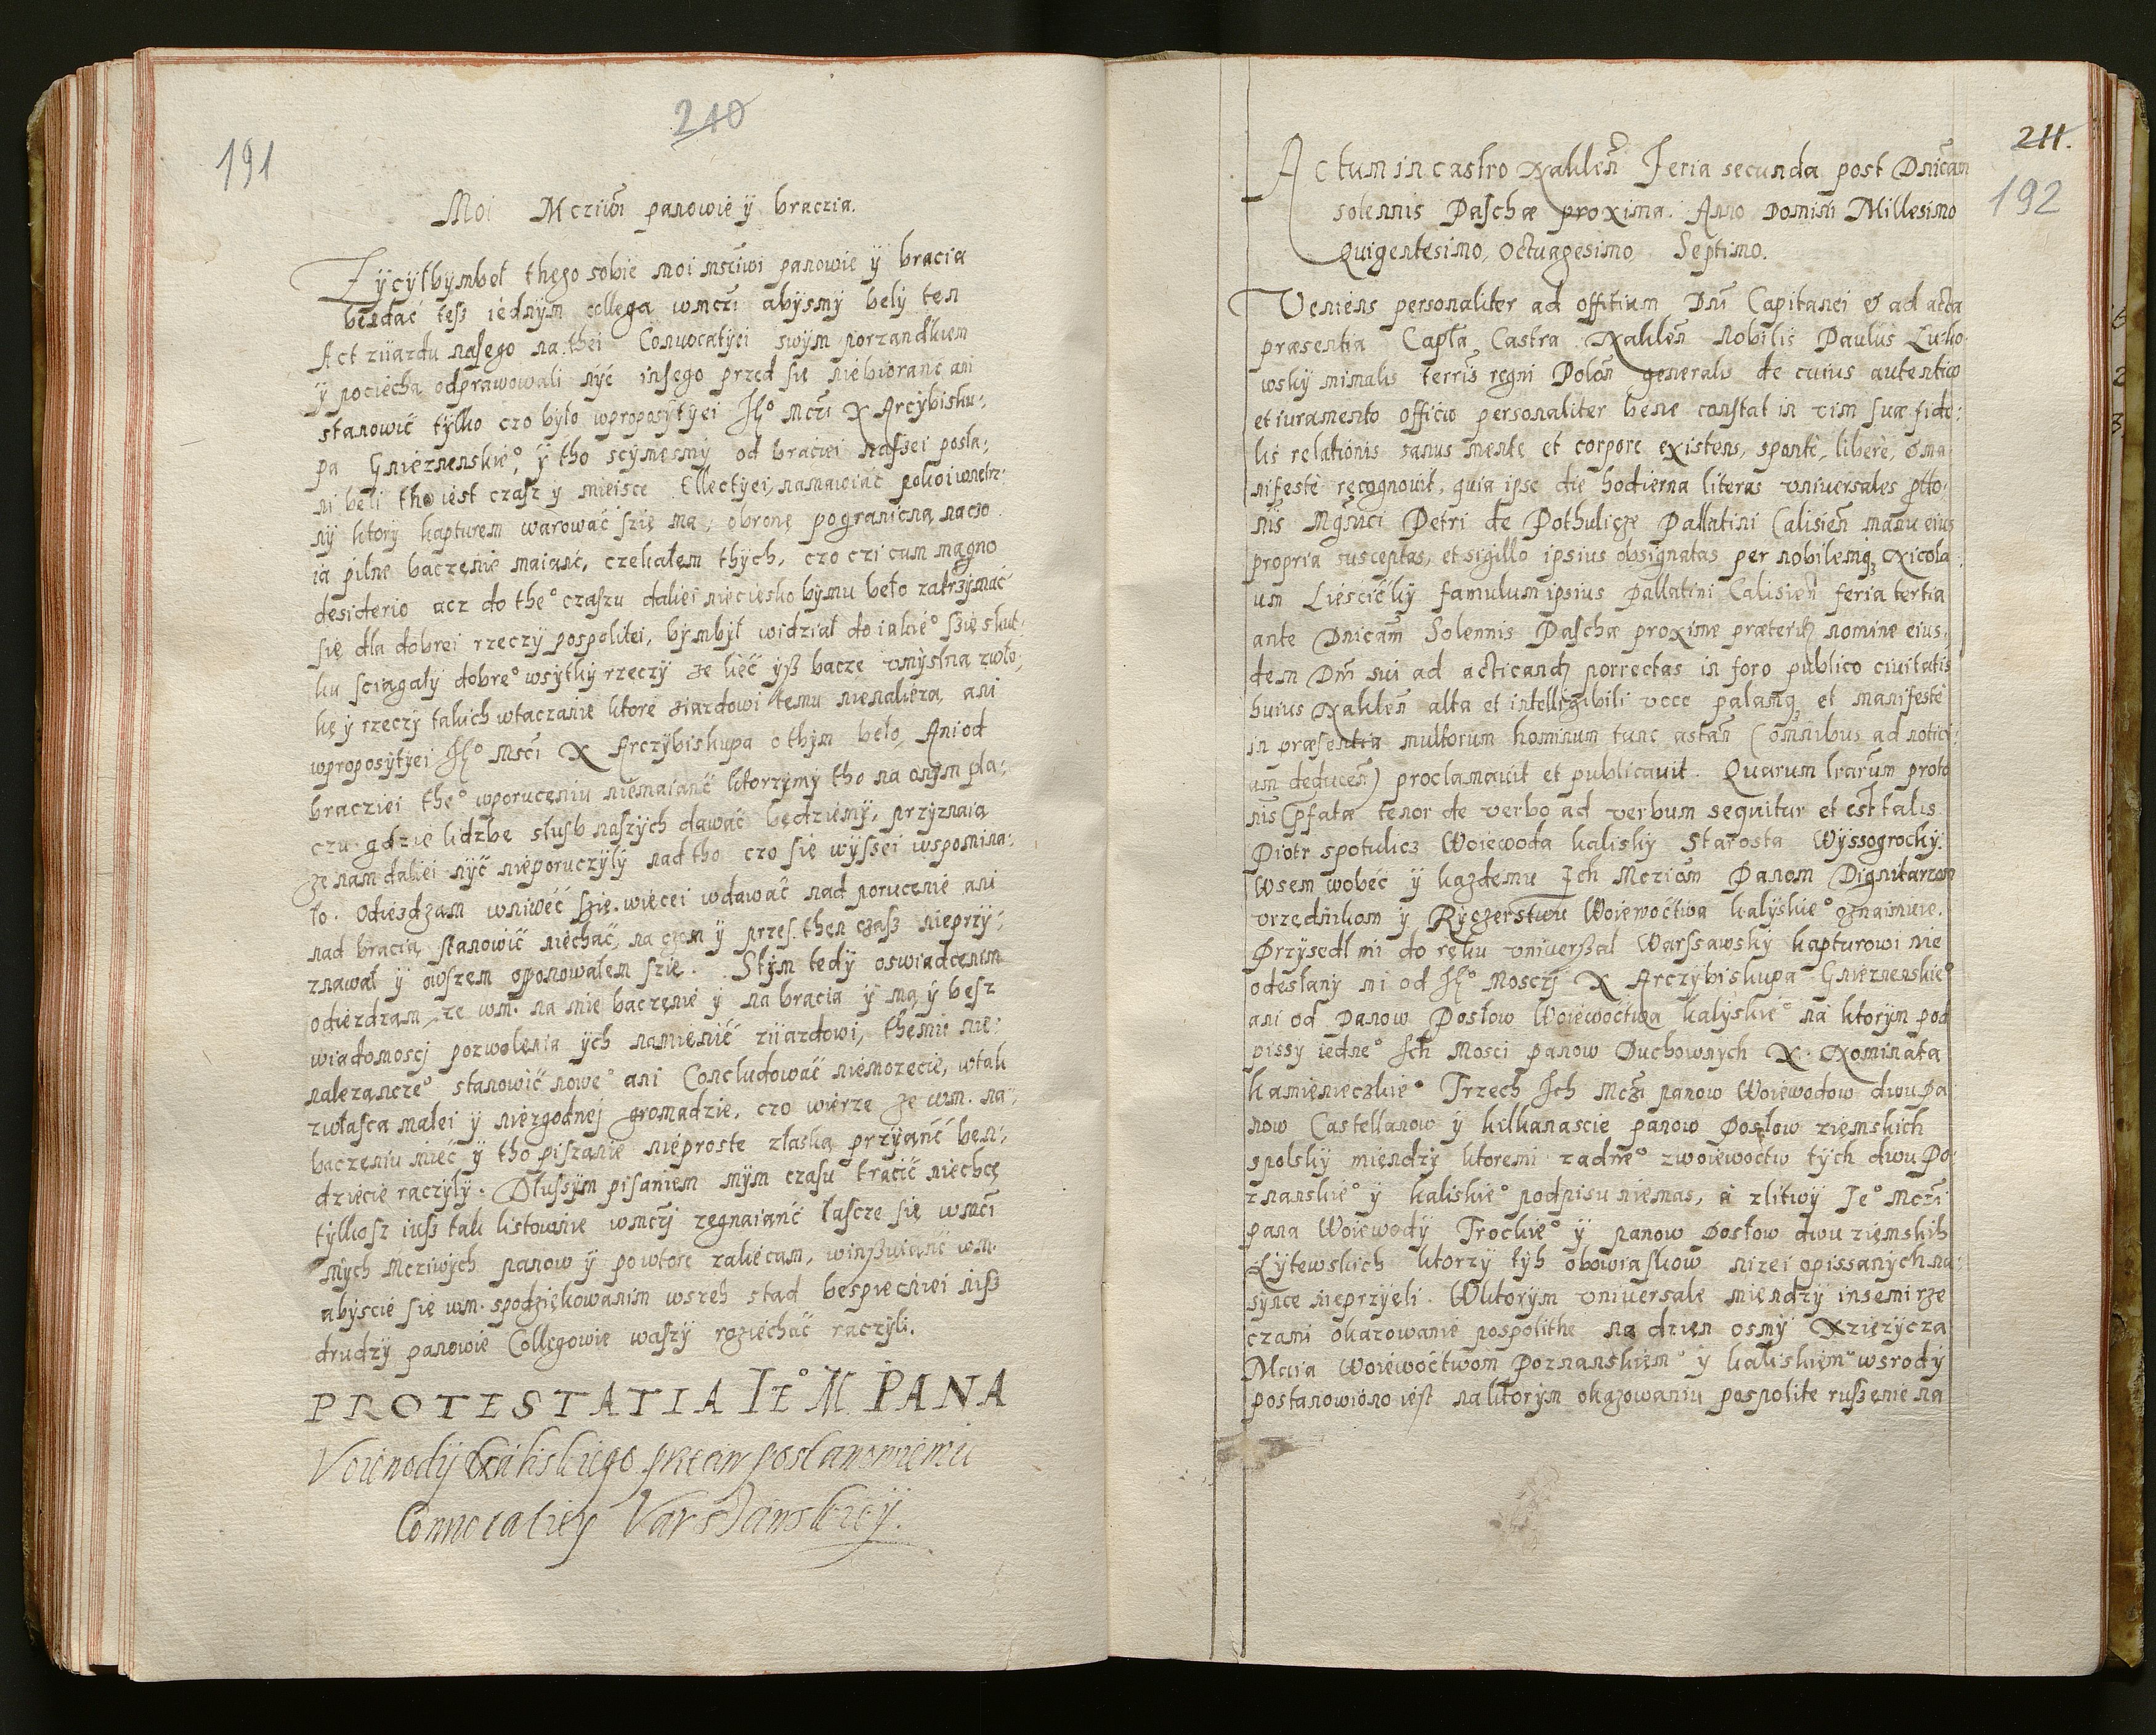 240
191
Moi Mcziwi panowie ÿ braczia.
Zÿcÿłbÿmbeł thego sobie moi msciwi panowie ÿ bracia
bendać tesz iednÿm collega wmczi abÿsmÿ belÿ ten
Act ziiazdu nasego na thei Conuocatÿei swÿm porzandkiem
ÿ pociecha odprawowali nÿc insego przed się niebioranc ani
stanowić tÿlko czo bÿło wproposÿtÿei Je° mczi X Arcÿbisku:
pa Gnieznenskie°, ÿ tho scÿmesmÿ od braciei nassei posła:
ni beli tho iest czasz ÿ mieisce Ellectÿei, namawiać pokoi wnetrz:
nÿ ktorÿ kapturem warować szię ma, obronę pogranicną nacżo
ia pilne baczenie maianc, czekałem thÿch, czo czi cum magno
desiderio acz do the° czaszu daliei niecieszko bÿmu beło zatrzÿmać
się dla dobrei rzeczÿ pospolitei, bÿmbÿł widział do iakie° szię skut:
ku sciagałÿ dobre° wsÿtkÿ rzeczÿ ze lieć ÿsz bacze vmÿslna zwło:
kę ÿ rzeczÿ takich wtaczanie ktore ziazdowi temu nienalieza, ani
wproposÿtÿei Je° Msci X Arczÿbiskupa o thÿm beło, Ani od
bracziei the° wporuceniu niemaianc ktorzÿmÿ tho na onÿm pla:
czu gdzie lidzbe słusb naszÿch dawać będziemÿ, przÿznaia
ze nam daliei nÿć nieporuczÿlÿ nad tho czo się wÿssei wspomina:
ło. Odiezdzam wniweć szię więcei wdawać nad porucenie ani
nad bracią stanowić niechać, na czem ÿ przes then czasz nieprzÿ:
znawał ÿ owszem opponowałem szię. Stÿm tedÿ oswiadcenim
odiezdzam, ze wm. na mie baczenie ÿ na bracia ÿ mą ÿ besz
wiadomoscj pozwolenia ÿch namienić ziiazdowi, themu nie:
nalezancze° stanowić nowe° ani Concludować niemozecie, wtak
zwłasca małei ÿ niezgodnej gromadzie, czo wierze ze wm. na:
baczeniu mieć ÿ tho pisanie nieproste złaską przÿianć ben:
dziecie raczÿlÿ. Dłussÿm pisaniem mÿm czasu tracić niechcę
tÿlkosz iusz tak listownie wmczj zegnaianć łascze się wmci
mÿch mcziwÿch panow ÿ powtore zaliecam, winszuianc wm.
abÿscie się wm. spodziękowanim wszeh stad bespiecniei nisz
drudzÿ panowie Collegowie waszÿ roziechać raczÿli.
PROTESTATIA IE° M PANA
Voiewodÿ Kaliskiego przeciw postanowieniu
Conuocatieÿ Varssawskieÿ.
211.
192
Actum in castro Naklen̄ Feria secunda post Dnicam
solennis Paschæ proxima. Anno Domini Millesimo
Quigentesimo, Octuagesimo Septimo.
Veniens personaliter ad offitium Dni Capitanei & ad acta
præsentia Capla Castra Naklen̄ nobilis Paulus Lusko
wskÿ minialis terris regni Polon̄ generalis de cuius autentico
et iuramento officio personaliter bene constat in vim suæ fide:
lis relationis sanus mente et corpore existens, sponte, libere, & ma
nifeste recognouit, quia ipse die hodierna literas vniuersales ptto:
nis Mgnici Petri de Pothulicze Pallatini Calisien̄ manu eius
propria susceptas, et sigillo ipsius obsignatas per nobilemq̨ Nicola
um Liescicky famulum ipsius Pallatini Calisien̄ feria tertia
ante Dnicam Solennis Paschæ proxime præterit̄ nomine eius:
dem Dni sui ad acticand̄ porrectas in foro publico ciuitatis
huius Naklen̄ alta et intelligibili voce palamq̨ et manifeste
in præsentia multorum hominum tunc astan̄ (omnibus ad notici:
um deducen̄) proclamauit et publicauit. Quarum lrarum proto
nis pfatæ tenor de verbo ad verbum sequitur et est talis
Piotr spotulicz Woiewoda kaliskÿ Starosta Wÿssogrockÿ.
Wsem wobec ÿ kazdemu Ich Mcziom Panom Dignitarzom
vrzednikom ÿ Rÿczerstwu Woiewoctwa kalÿskie° oznaimuie.
Przÿsedł mi do ręku vniuerszał Warssawskÿ kapturowi nie
odesłanÿ mi od Je° Mosczj X Arczÿbiskupa Gnieznenskie°
ani od Panow Posłow Woiewoctwa kalÿskie° na ktorÿm pod
pissÿ iedne° Ich Mosci panow Duchownÿch X. Nominata
kamienieczkie° Trzech Ich Mczi panow Woiewodow dwu pa
now Castellanow ÿ kilkanascie panow Posłow ziemskich
spolskÿ miendzÿ ktoremi zadne° zwoiewoctw tÿch dwu Po:
znanskie° ÿ kaliskie° podpisu niemas, a zlitwÿ Je° Mczi
pana Woiewodÿ Trockie° ÿ panow Posłow dwu ziemskih
Lÿtewskich ktorzÿ tÿh obowiaskow nizei opissanÿch na:
sÿnce nieprzÿeli. Wktorÿm vniuersale miendzÿ insemi rze
czami okazowanie pospolithe na dzien osmÿ Xziezÿcza
Maia Woiewoctwom Poznanskiem° ÿ kaliskiem° wsrodÿ
postanowiono iest na ktorÿm okazowaniu pospolite ruszenie na